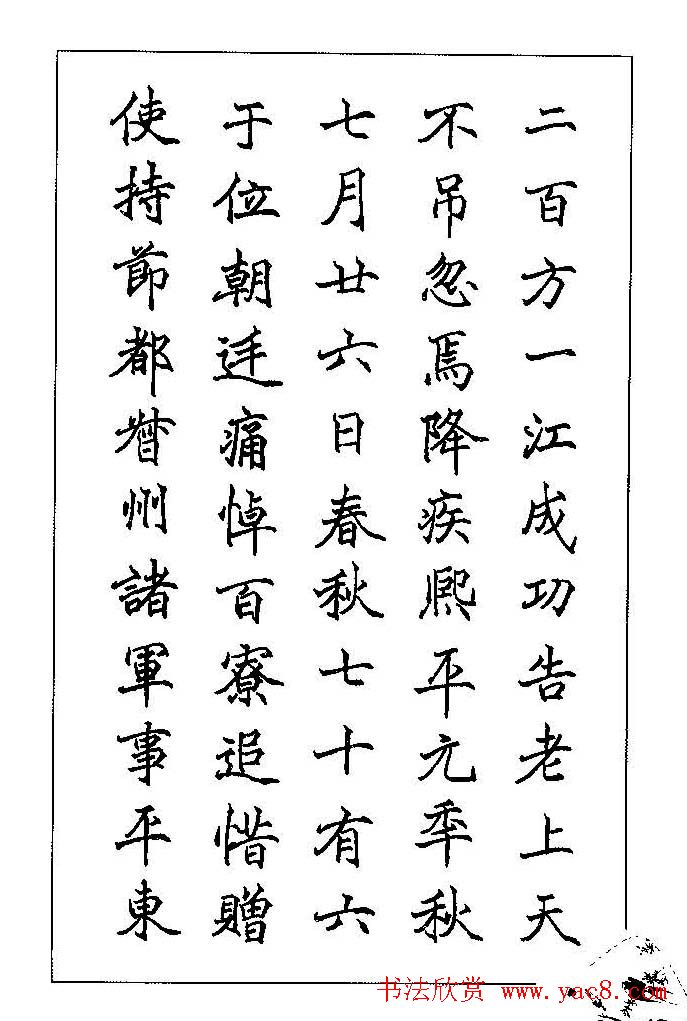 二百方一江成功告老上天
不吊忽焉降疾熈平元秊秋
七月廿六日春秋七十有六
于位朝廷痛悼百寮追惜贈
使持節都督州諸軍事平東
书法欣赏 www.yac8.com